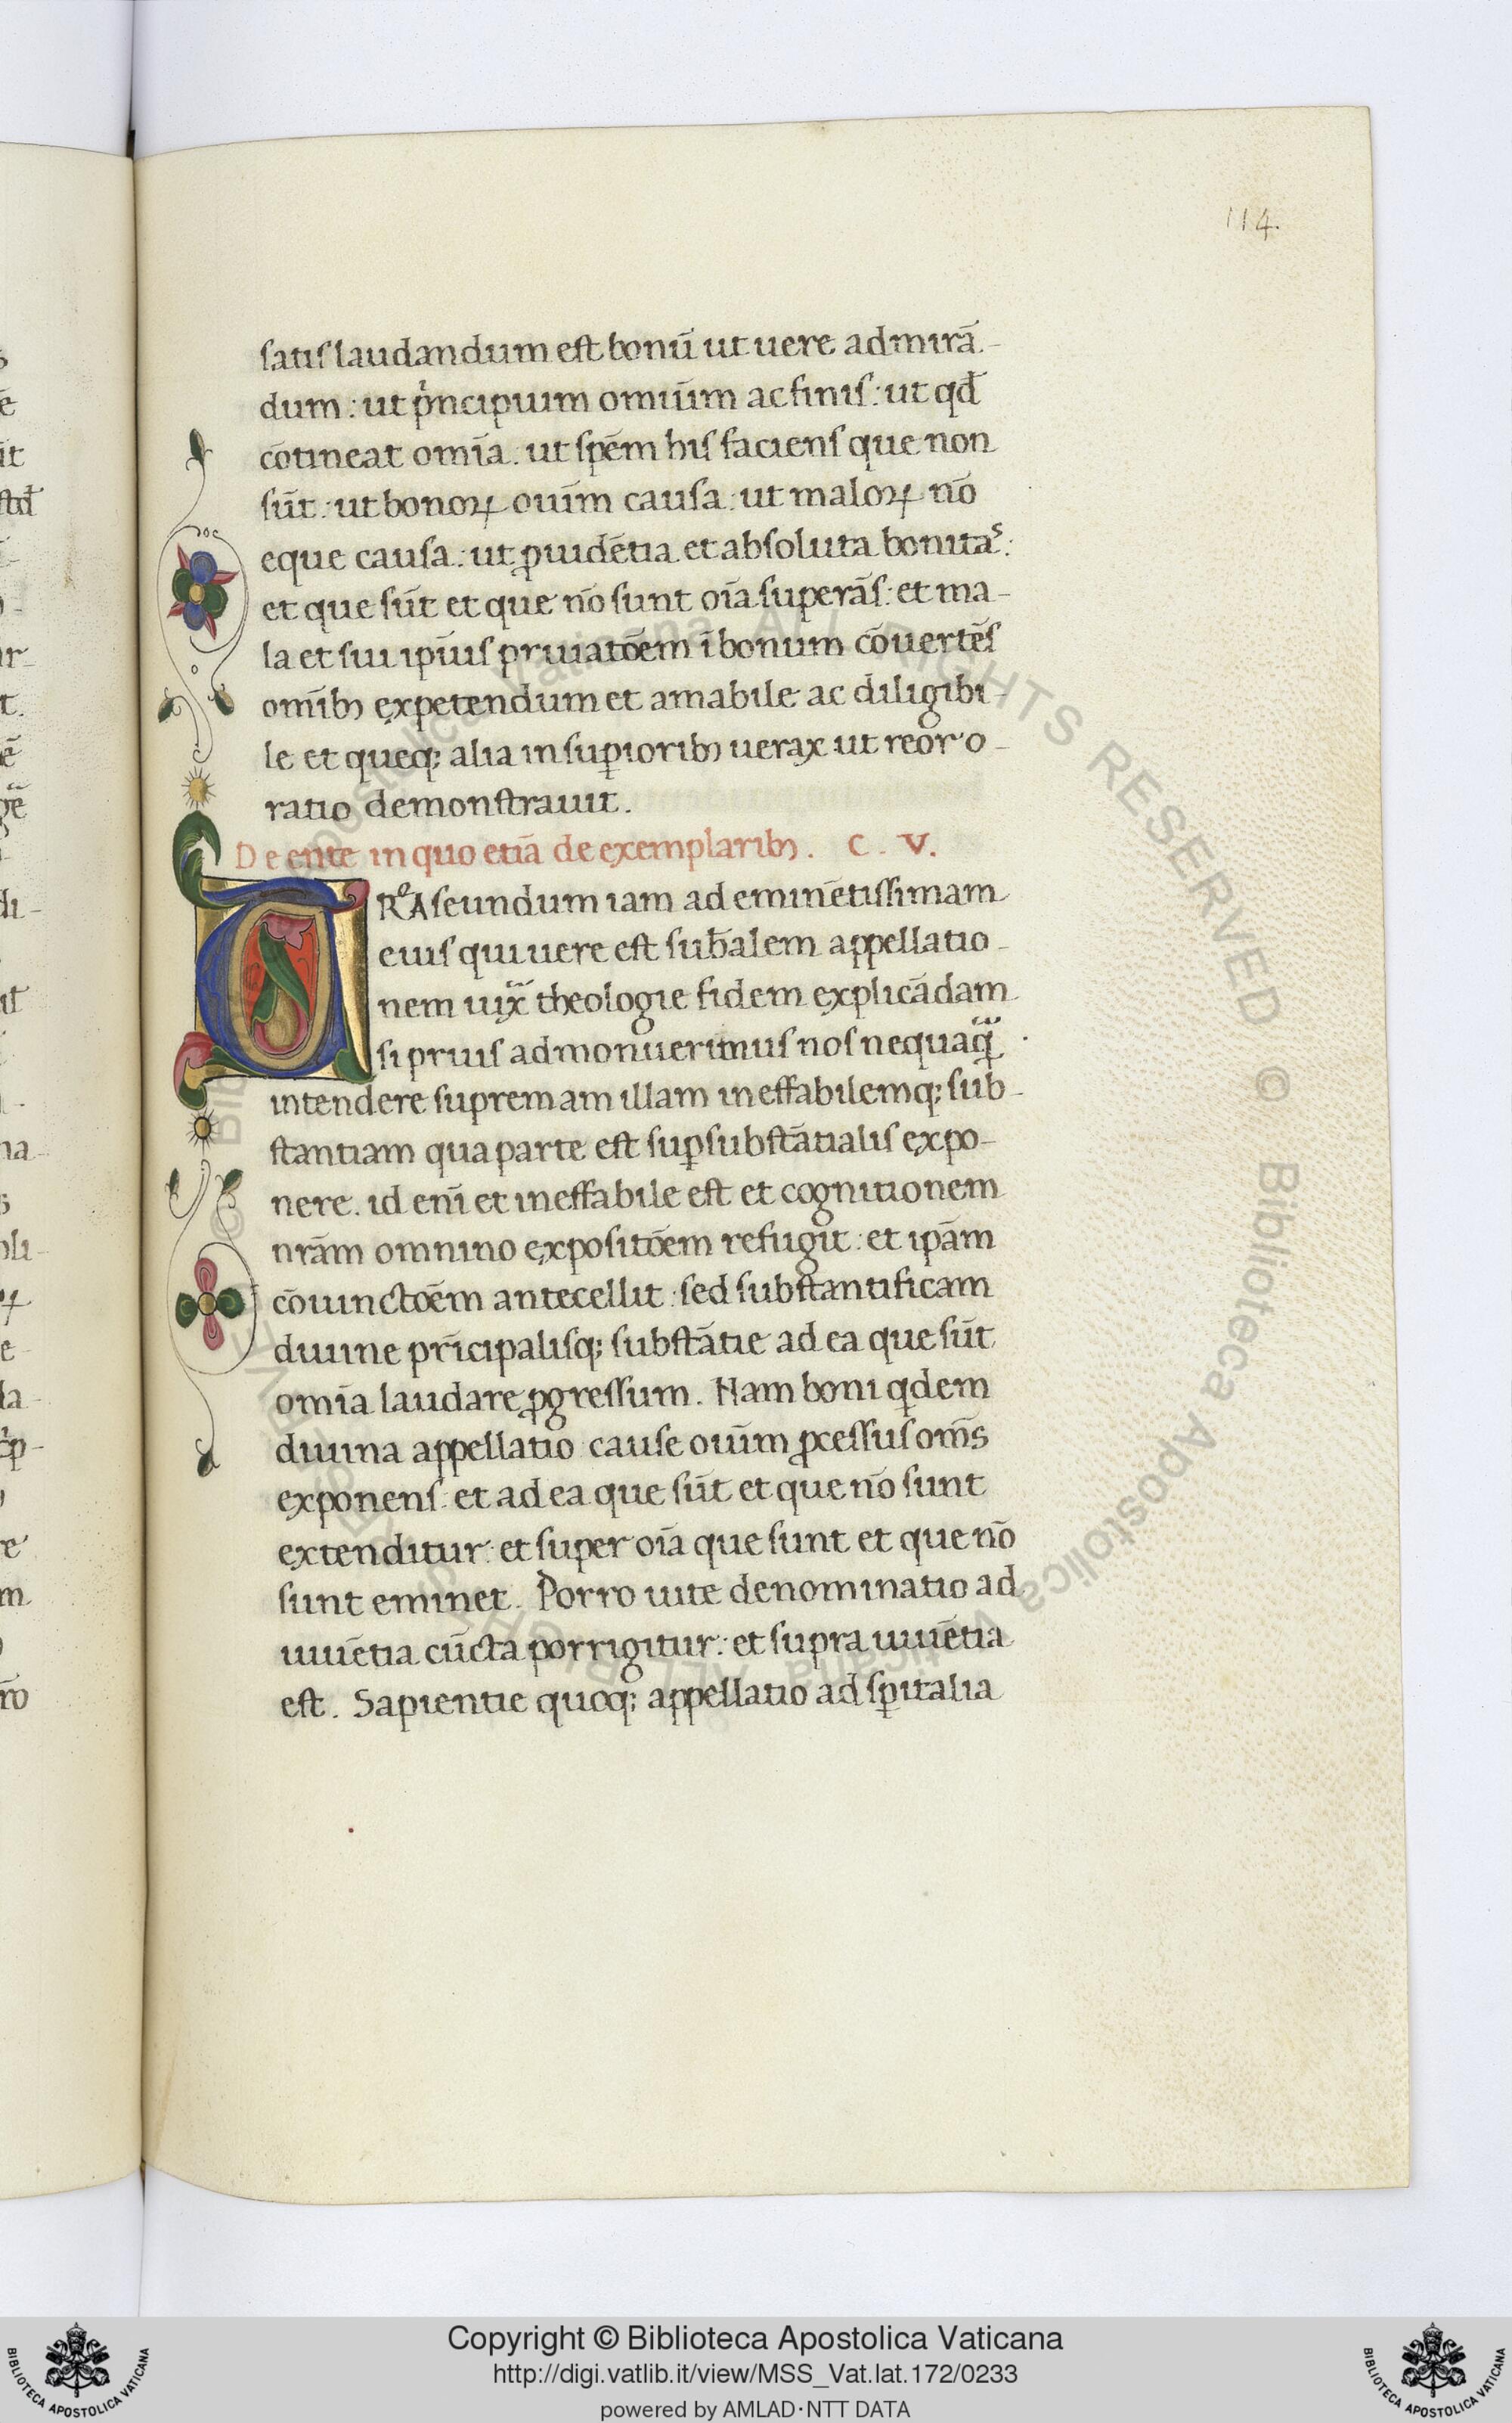 114.
satis laudandum est bonū ut uere admirā-
dum: ut pͥncipium omiūm ac finis: ut qđ
cōtineat omīa. ut spēm his faciens que non
sūt: ut bonoꝝ ouīm causa: ut maloꝝ nō
eque causa: ut ꝓuidētia et absoluta bonitaˢ:
et que sūt et que nō sunt oīa superās: et ma-
la et sui ipīus priuatōem ī bonum cōuertēs
omībꝫ expetendum et amabile ac diligibi-
le et queqꝫ alia in suꝑioribꝫ uerax ut reor o-
ratio demonstrauit.
De ente in quo etiā de exemplaribꝫ. C. V.
TRͦA seundum iam ad eminētissimam
eius qui uere est sub̄alem appellatio-
nem uix̄ theologie fidem explicādam
si prius admonuerimus nos nequaqᷓ
intendere supremam illam ineffabilemqꝫ sub-
stantiam qua parte est suꝑsubstātialis expo-
nere. id enī et ineffabile est et cognitionem
nrām omnino expositōem refugit: et ipām
cōuinctōem antecellit: sed substantificam
diuine prīcipalisqꝫ substātie ad ea que sūt
omīa laudare ꝓgressum. Nam boni qͥdem
diuina appellatio cause ouīm ꝓcessus om̄s
exponens: et ad ea que sūt et que nō sunt
extenditur: et super oīa que sunt et que nō
sunt eminet. Porro uite denominatio ad
uiuētia cūcta porrigitur: et supra uiuētia
est. Sapientie quoqꝫ appellatio ad sꝑitalia
Copyright © Biblioteca Apostolica Vaticana
http://digi.vatlib.it/view/MSS_Vat.lat.172/0233
powered by AMLAD·NTT DATA